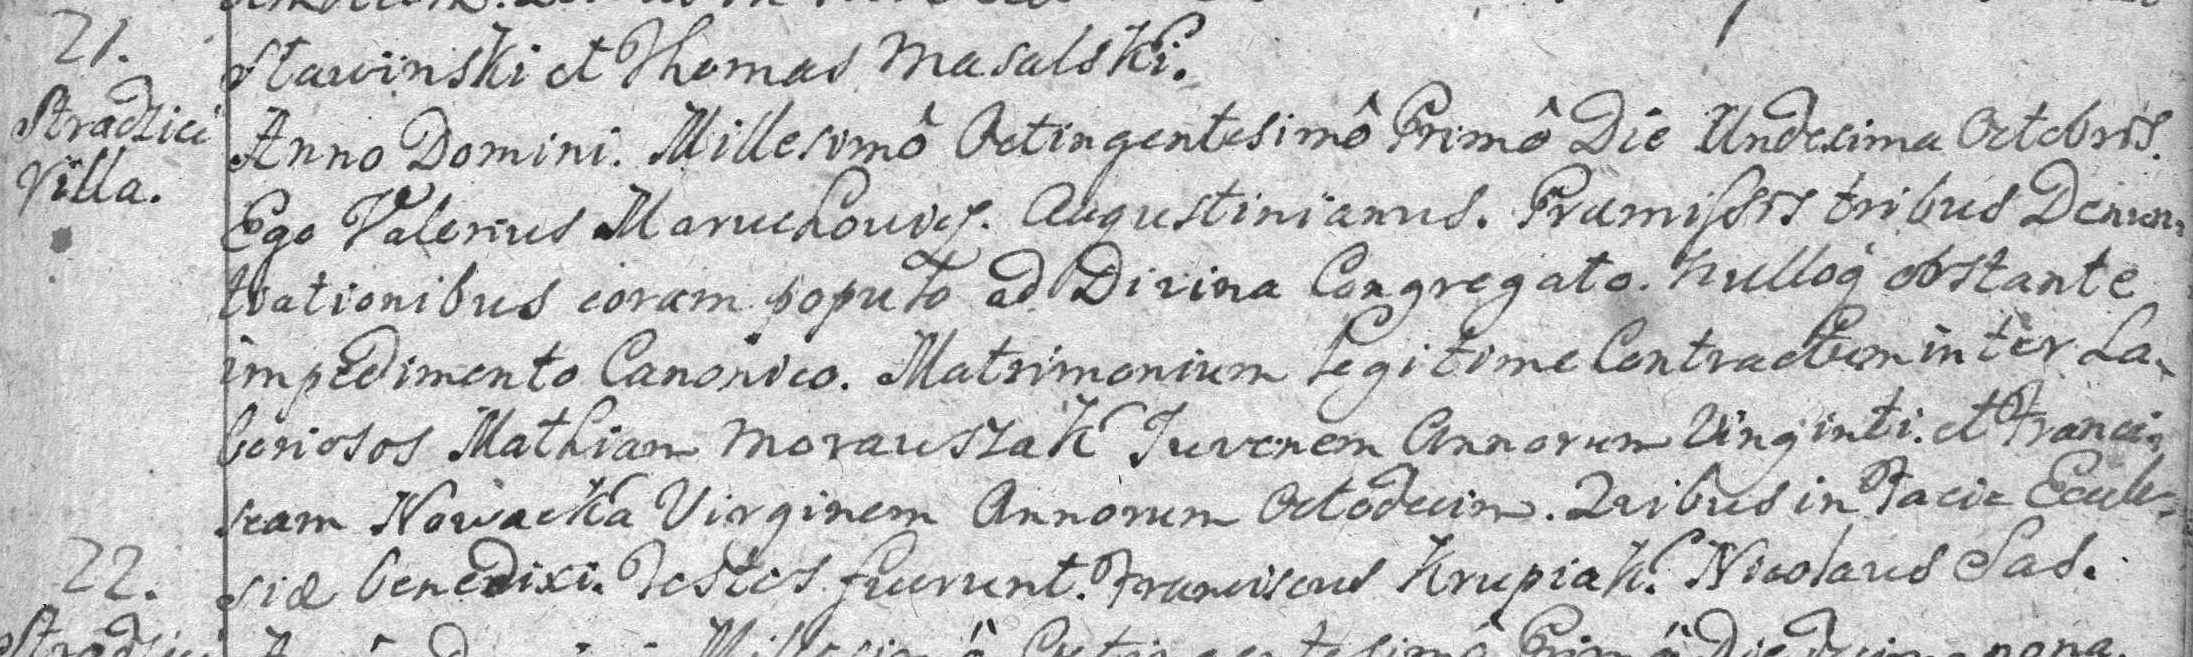 21.
Stawinski et Thomas Masalski.
Stradzici
Villa.
Anno Domini. Millesimô Octingentesimô Primô Die Undecima Octobris.
Ego Valerius Augustinianus. Præmissis tribus Denun,
tiationibus coram populo ad Divina Congregato. Nulloq́ obstante
impedimento Canonico. Matrimonium Legitime Contractum inter La,
boriosos Mathiam Morauszak Juvenem Annorum Vinginti. et Francis,
scam Nowacka Virginem Annorum Octodecim. Quibus in Facie Eccle,
siæ benedixi. Testes fuerunt. Franciscus Krupiak. Nicolaus Sas.
22.